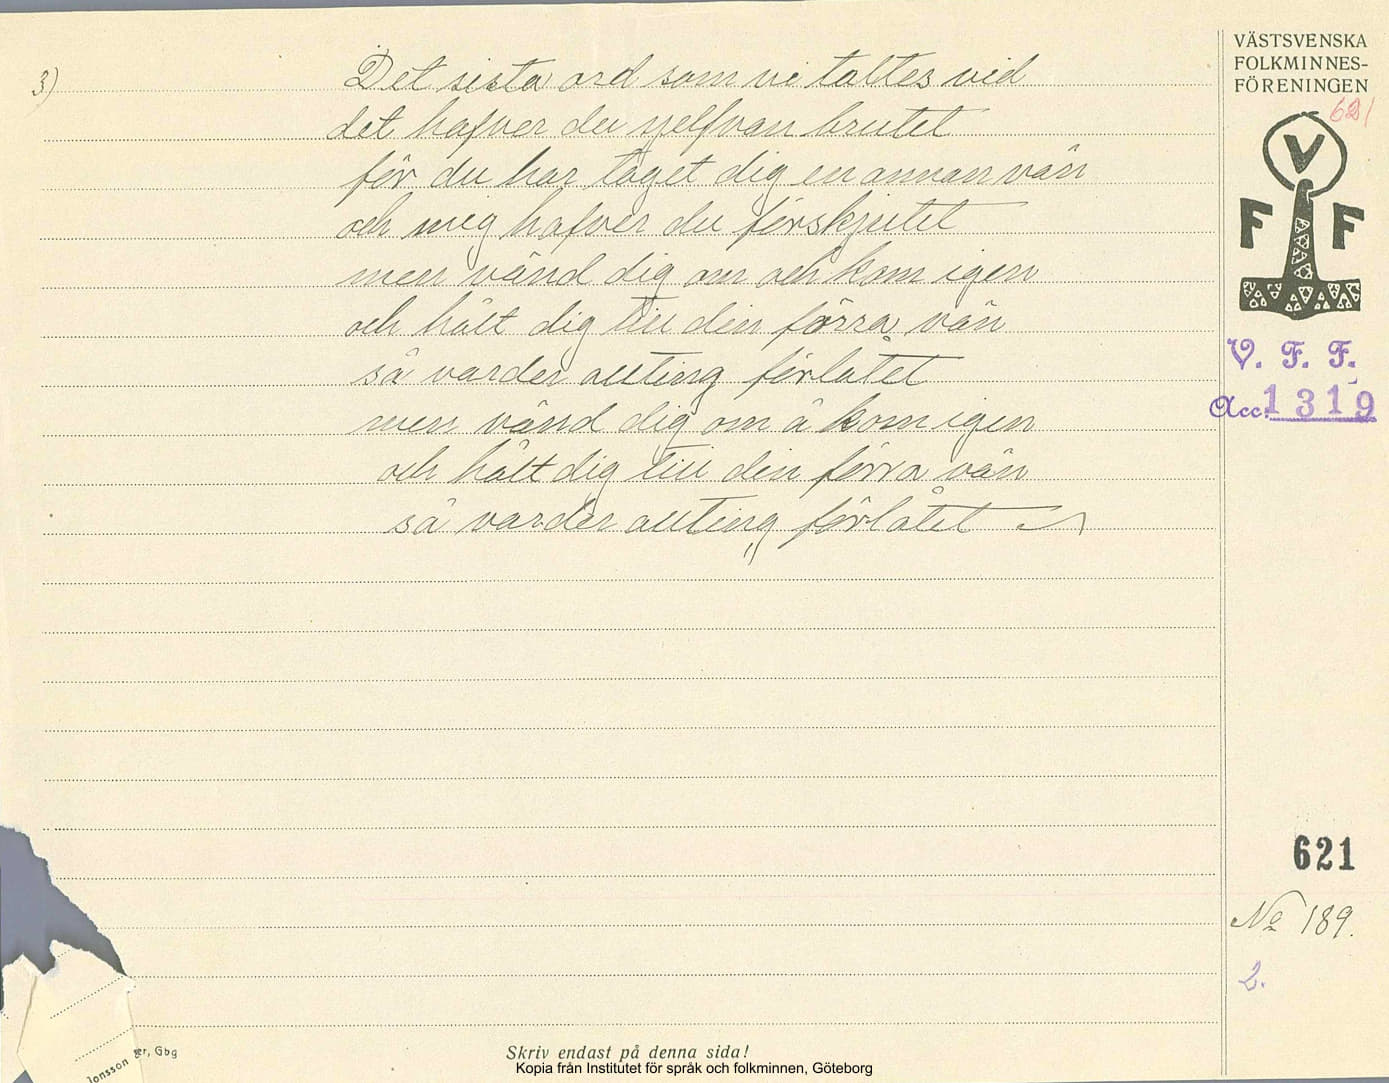 3)
Det sista ord som vi taltes vid
det hafver du sjelfvan brutet
för du har taget dig en annan vän
och mig hafver du förskjutet
men vänd dig om och kom igen
och hält dig till din förra vän
så varder allting förlåtet
men vänd dig om å kom igen
och hält dig till din förra vän
så varder allting förlåtet
VÄSTSVENSKA
FOLKMINNES-
FÖRENINGEN
621
V
F F
V. F. F.
Acc. 1319
621
No 189.
2.
Jonsson
er, Gbg
Skriv endast på denna sida!
Kopia från Institutet för språk och folkminnen, Göteborg